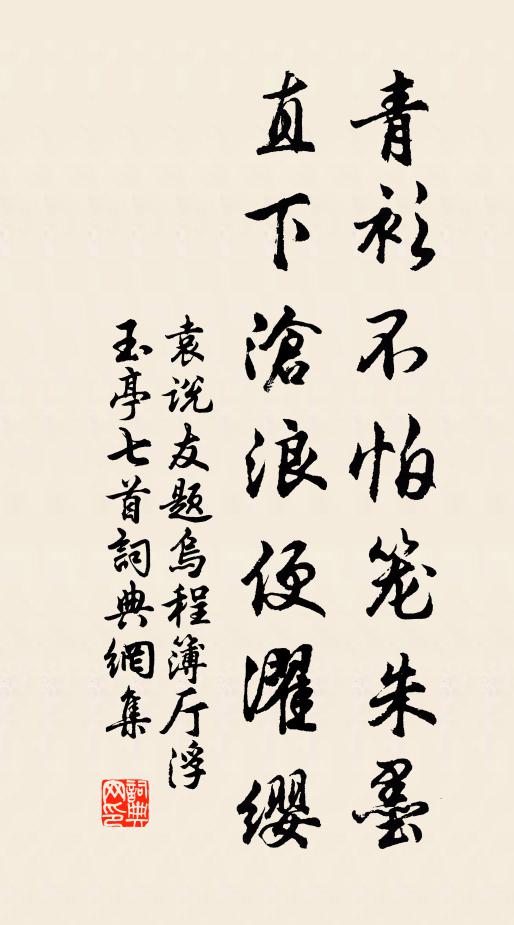 青衫不怕笼朱墨
直下滄浪便濯缨
袁说友题烏程簿厅浮
玉亭七首詞典網集
詞典网印